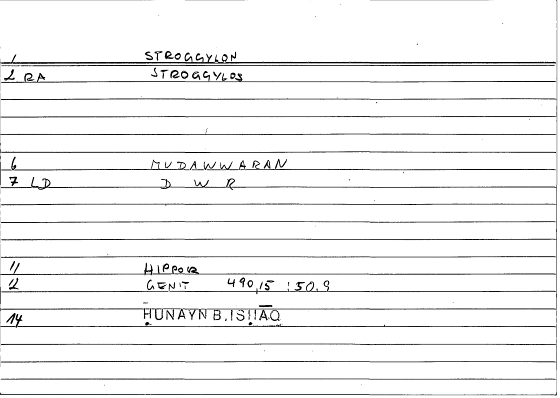 1 STROGGYLON
2 RA STROGGYLOS
6 MUDAWWARAN
7 LD D W R
11 HIPPOKR
12 GENIT 490,15 : 50.9
14 ḤUNAYN B. ISḤĀQ